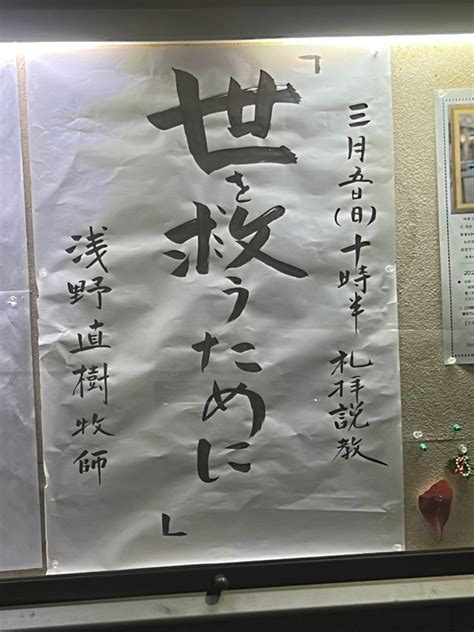 三月五日(日)十時半 礼拝説教
「世を救うために」
浅野直樹牧師